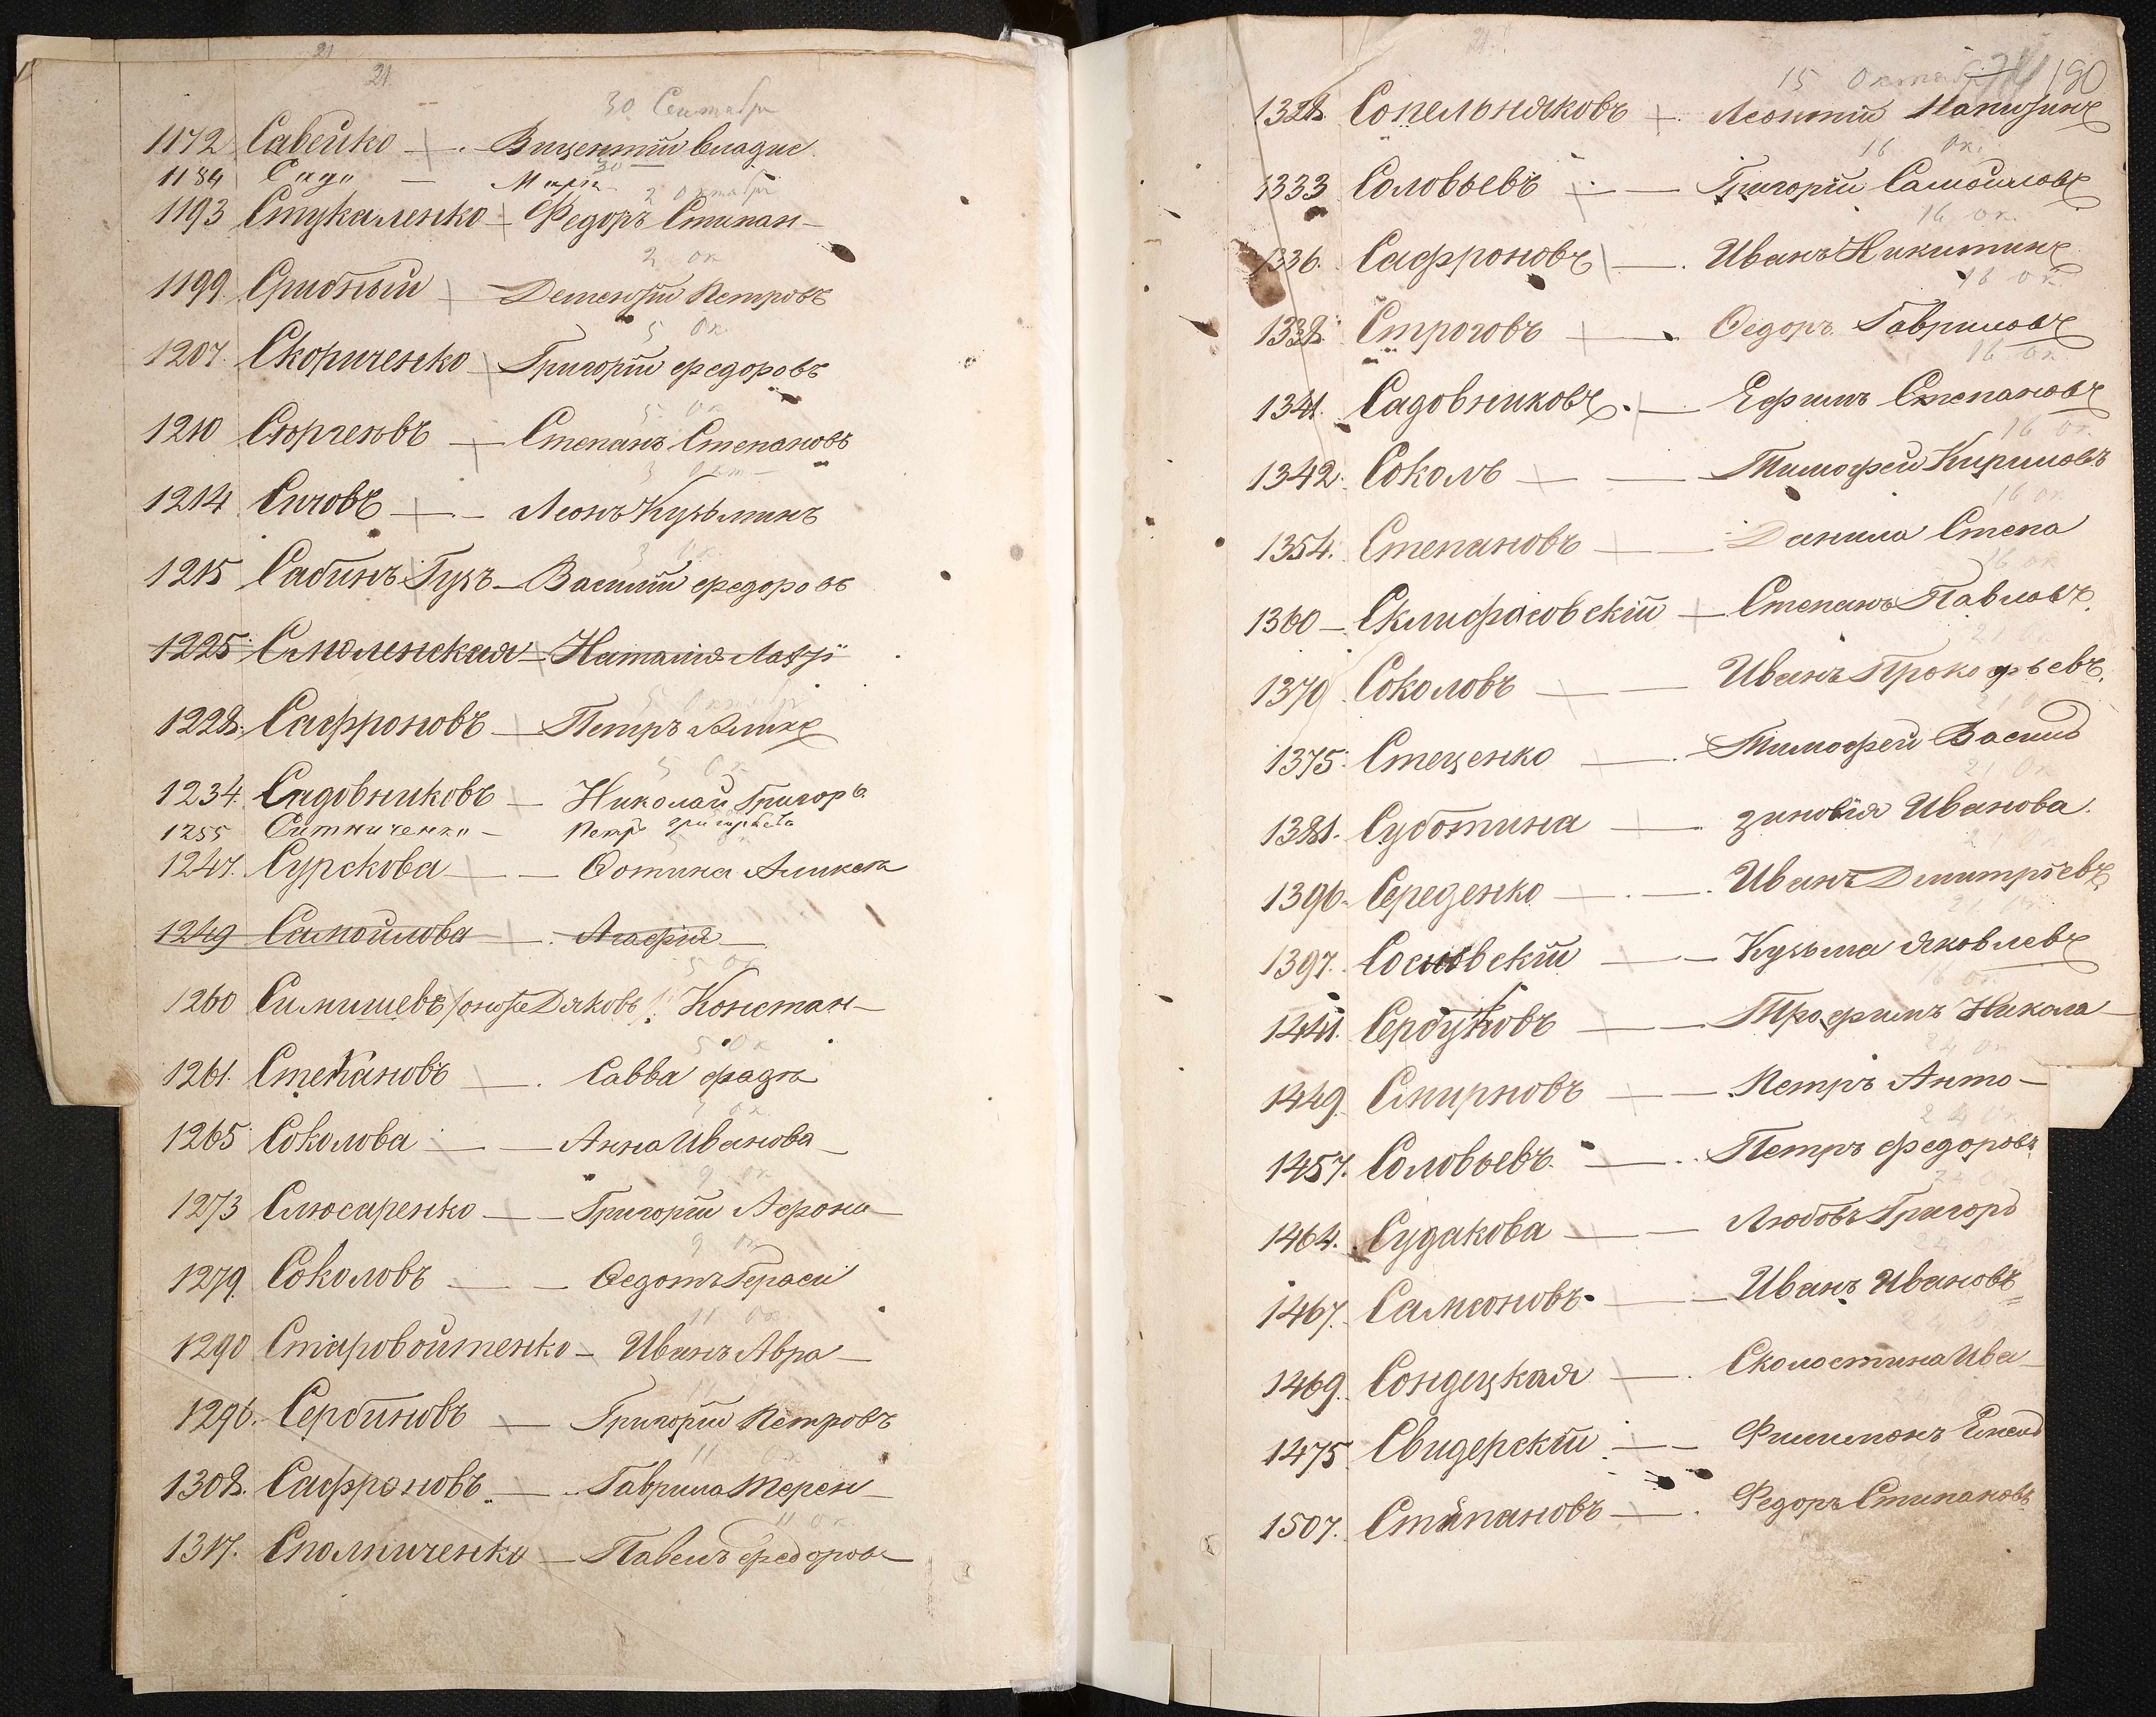 21
21
30 Сентябр
1172 Савейко — Вицентий владис
1184 Сидо — Марк 30
2 Октябр
1193 Стукаленко — Федоръ Стипан—
2 ок
1199 Срибный — Дементий Петровъ
5 Ок.
1207. Скориченко Григорий федоровъ
5 Ок
1210 Сюргеевъ — Степанъ Степановъ
3 Окт—
1214 Сичовъ — Леонъ Кузьминъ
3 Ок.
1215 Сабинъ Гузъ — Василий федоровъ
1225. Смоленская — Наталия Лавр
5 Октябр
1228. Сафроновъ — Петръ
5 Ок
1234. Садовниковъ — Николай Григорь
1255 Ситниченко — Петръ григорьевъ
5 Ок
1247. Сурскова — Ѳотина Аликса
1249 Самойлова — Агафия —
5 Ок
1260 Симишевъ /онъже Дяковъ/ Констан—
5 Ок
1261. Степановъ — Савва фадѣ
ок.
1265 Соколова — Анна Иванова —
9 ок
1273 Слюсаренко — Григорий Афона—
9 ок
1279. Соколовъ — Ѳедотъ Гераси
11 Ок.
1290 Старовойтенко — Иванъ Авра—
11
1296. Сербиновъ — Григорий Петровъ
11 Ок
1308. Сафроновъ — Гаврила Терен—
11 ок.
1317. Сполниченко — Павелъ федоров—
15 Октяб 190
1328. Сопельняковъ — Леонтий
16 Ок.
1333 Соловьевъ — Григорий Самойловъ
16 ок.
1336. Сафроновъ — Иванъ Никитинъ
16 ок
1338. Строговъ — Ѳедоръ Гавриловъ
16 ок
1341. Садовниковъ — Ефимъ Степановъ
16 ок.
1342. Соколъ — Тимофей Кириловъ
16 ок
1354. Степановъ — Данила Степа
16 ок
1360 — Склифасовскій — Степанъ Павловъ
2
1370 Соколовъ — Иванъ Прокофьевъ.
21 о
1375. Стеценко — Тимофей Василь
21 Ок
1381. Суботина — зиновія Иванова.
21 ок
1396. Середенко — Иванъ Дмитріевъ
21 ок
1397. Сосновскій — Кузьма Яковлевъ
16 ок.
1441. Сербуковъ — Трофимъ Никола—
24 ок
1449. Смирновъ — Петръ Анто—
24 Ок
1457. Соловьевъ. — Петръ федоровъ
24 о
1464. Судакова — Любовь Григорь
24
1467. Самсоновъ — Иванъ Ивановъ
24 о
1469. Сондецкая — Сколостина Ива—
24
1475 Свидерскій — Филимонъ
1507. Стипановъ — Федоръ Стипановъ